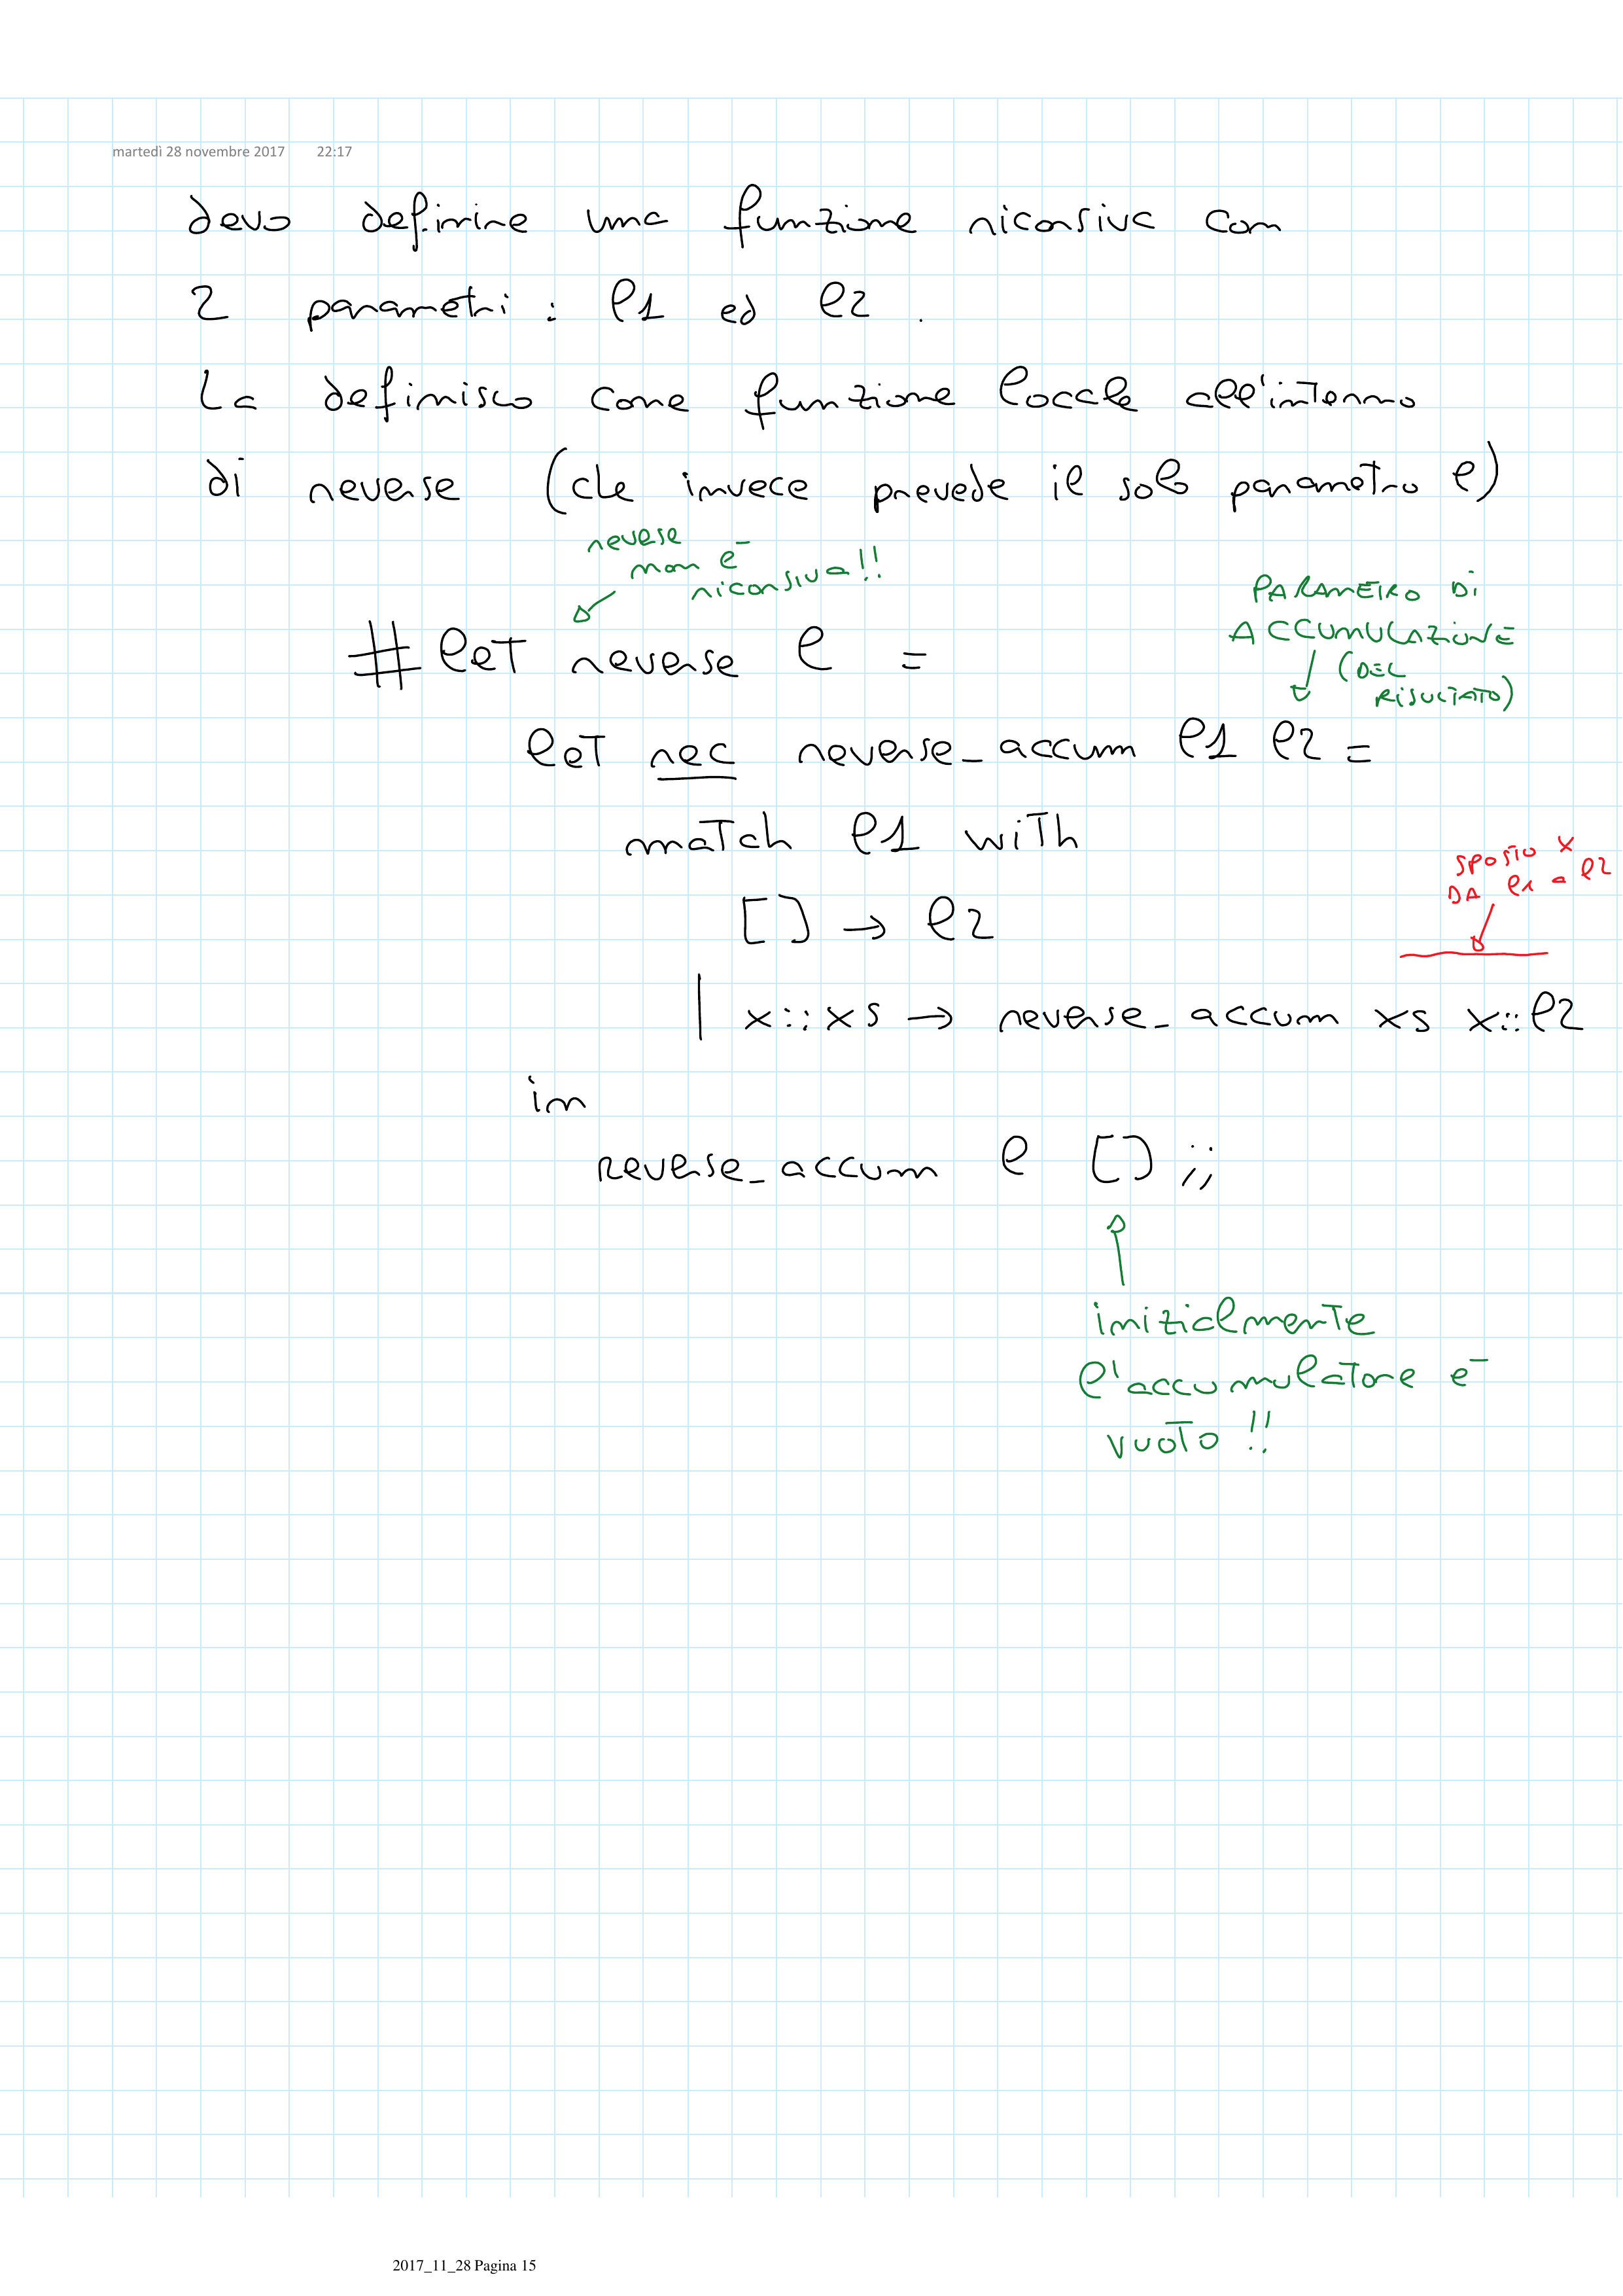 martedì 28 novembre 2017 22:17
devo definire una funzione ricorsiva con
2 parametri : l1 ed l2 .
La definisco come funzione locale all'interno
di reverse (che invece prevede il solo parametro l)
reverse
non è
ricorsiva!!
PARAMETRO DI
ACCUMULAZIONE
(DEL
RISULTATO)
# let reverse l =
let rec reverse_accum l1 l2 =
match l1 with
SPOSTO x
DA l1 a l2
[] → l2
| x::xs → reverse_accum xs x::l2
in
reverse_accum l [] ;;
inizialmente
l'accumulatore è
vuoto !!
2017_11_28 Pagina 15